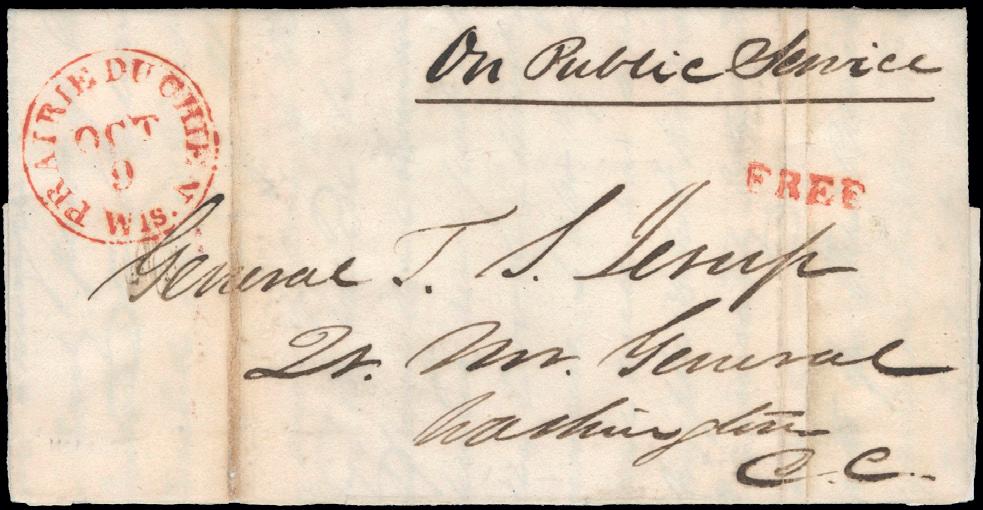 On Public Service
PRAIRIE DU CHIEN
OCT
9
Wis.
FREE
General T. S. Jesup
Qr. Mr. General
Washington
D. C.